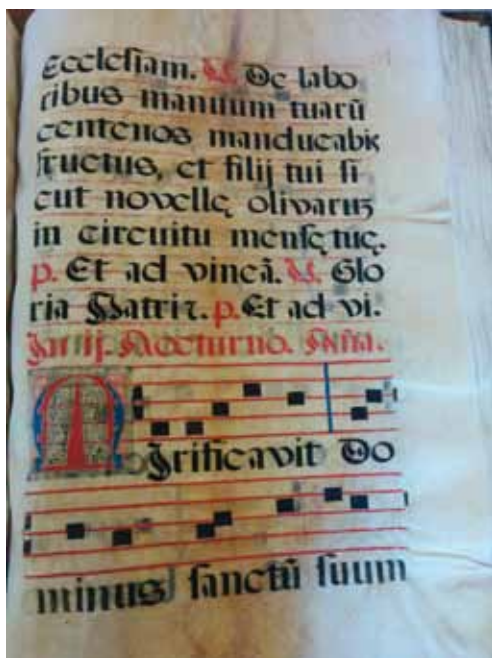 Ecclesiam. V. De labo
ribus manuum tuarū
centenos manducabis
fructus, et filij tui si
cut novellę olivaruz
in circuitu mensę tuę.
p. Et ad vineā. V. Glo
ria Patri z. p. Et ad vi.
In ij. Nocturno. Aña.
Mirificavit Do
minus sanctū suum